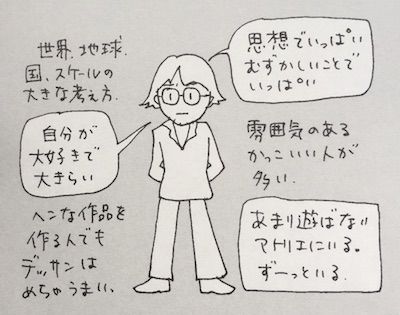 世界、地球、
国、スケールの
大きな考え方。
思想でいっぱい
むずかしいことで
いっぱい
自分が
大好きで
大きらい
雰囲気のある
かっこいい人が
多い。
ヘンな作品を
作る人でも
デッサンは
めちゃうまい。
あまり遊ばない
アトリエにいる。
ずーっといる。